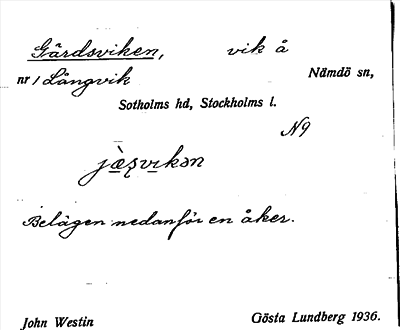 Gårdsviken, vik å
nr 1 Långvik Nämdö sn,
Sotholms hd, Stockholms l.
N9
jæ̀ṣvikən
Belägen nedanför en åker.
John Westin Gösta Lundberg 1936.